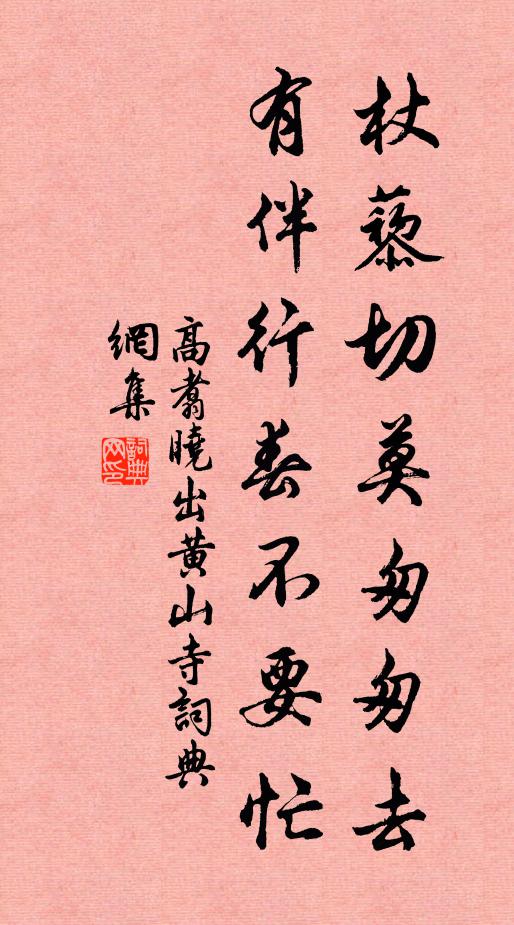 杖藜切莫匆匆去
有伴行春不要忙
高翥曉出黄山寺詞典
網集
詞典網印